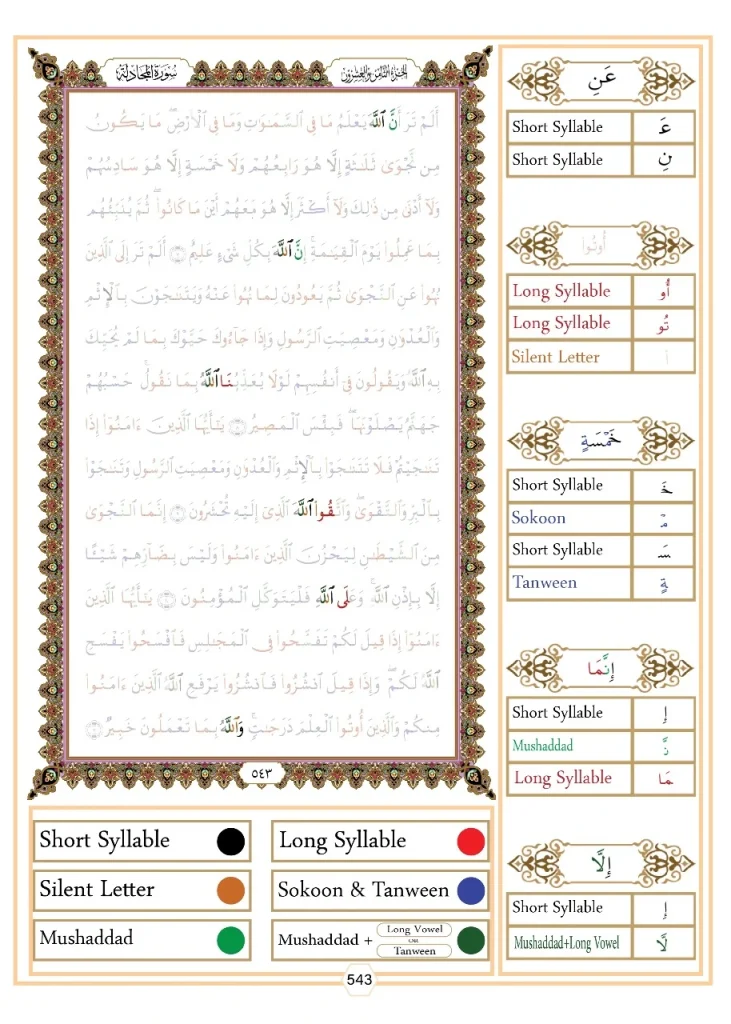 سُورَةُ المُجَادلة
الجزء الثامن والعشرون
أَلَمْ تَرَ أَنَّ ٱللَّهَ يَعْلَمُ مَا فِى ٱلسَّمَٰوَٰتِ وَمَا فِى ٱلْأَرْضِ ۖ مَا يَكُونُ
مِن نَّجْوَىٰ ثَلَٰثَةٍ إِلَّا هُوَ رَابِعُهُمْ وَلَا خَمْسَةٍ إِلَّا هُوَ سَادِسُهُمْ
وَلَآ أَدْنَىٰ مِن ذَٰلِكَ وَلَآ أَكْثَرَ إِلَّا هُوَ مَعَهُمْ أَيْنَ مَا كَانُوا۟ ۖ ثُمَّ يُنَبِّئُهُم
بِمَا عَمِلُوا۟ يَوْمَ ٱلْقِيَٰمَةِ ۚ إِنَّ ٱللَّهَ بِكُلِّ شَىْءٍ عَلِيمٌ ٧ أَلَمْ تَرَ إِلَى ٱلَّذِينَ
نُهُوا۟ عَنِ ٱلنَّجْوَىٰ ثُمَّ يَعُودُونَ لِمَا نُهُوا۟ عَنْهُ وَيَتَنَٰجَوْنَ بِٱلْإِثْمِ
وَٱلْعُدْوَٰنِ وَمَعْصِيَتِ ٱلرَّسُولِ وَإِذَا جَآءُوكَ حَيَّوْكَ بِمَا لَمْ يُحَيِّكَ
بِهِ ٱللَّهُ وَيَقُولُونَ فِىٓ أَنفُسِهِمْ لَوْلَا يُعَذِّبُنَا ٱللَّهُ بِمَا نَقُولُ ۚ حَسْبُهُمْ
جَهَنَّمُ يَصْلَوْنَهَا ۖ فَبِئْسَ ٱلْمَصِيرُ ٨ يَٰٓأَيُّهَا ٱلَّذِينَ ءَامَنُوٓا۟ إِذَا
تَنَٰجَيْتُمْ فَلَا تَتَنَٰجَوْا۟ بِٱلْإِثْمِ وَٱلْعُدْوَٰنِ وَمَعْصِيَتِ ٱلرَّسُولِ وَتَنَٰجَوْا۟
بِٱلْبِرِّ وَٱلتَّقْوَىٰ ۖ وَٱتَّقُوا۟ ٱللَّهَ ٱلَّذِىٓ إِلَيْهِ تُحْشَرُونَ ٩ إِنَّمَا ٱلنَّجْوَىٰ
مِنَ ٱلشَّيْطَٰنِ لِيَحْزُنَ ٱلَّذِينَ ءَامَنُوا۟ وَلَيْسَ بِضَآرِّهِمْ شَيْـًٔا
إِلَّا بِإِذْنِ ٱللَّهِ ۚ وَعَلَى ٱللَّهِ فَلْيَتَوَكَّلِ ٱلْمُؤْمِنُونَ ١٠ يَٰٓأَيُّهَا ٱلَّذِينَ
ءَامَنُوٓا۟ إِذَا قِيلَ لَكُمْ تَفَسَّحُوا۟ فِى ٱلْمَجَٰلِسِ فَٱفْسَحُوا۟ يَفْسَحِ
ٱللَّهُ لَكُمْ ۖ وَإِذَا قِيلَ ٱنشُزُوا۟ فَٱنشُزُوا۟ يَرْفَعِ ٱللَّهُ ٱلَّذِينَ ءَامَنُوا۟
مِنكُمْ وَٱلَّذِينَ أُوتُوا۟ ٱلْعِلْمَ دَرَجَٰتٍ ۚ وَٱللَّهُ بِمَا تَعْمَلُونَ خَبِيرٌ ١١
٥٤٣
عَنِ
Short Syllable عَـ
Short Syllable نِ
أُوتُوا۟
Long Syllable أُو
Long Syllable تُو
Silent Letter ا
خَمْسَةٍ
Short Syllable خَـ
Sokoon ـمْـ
Short Syllable ـسَـ
Tanween ـةٍ
إِنَّمَا
Short Syllable إِ
Mushaddad نَّـ
Long Syllable ـمَا
إِلَّا
Short Syllable إِ
Mushaddad+Long Vowel لَّا
Short Syllable
Long Syllable
Silent Letter
Sokoon & Tanween
Mushaddad
Mushaddad + Long Vowel
Tanween
543